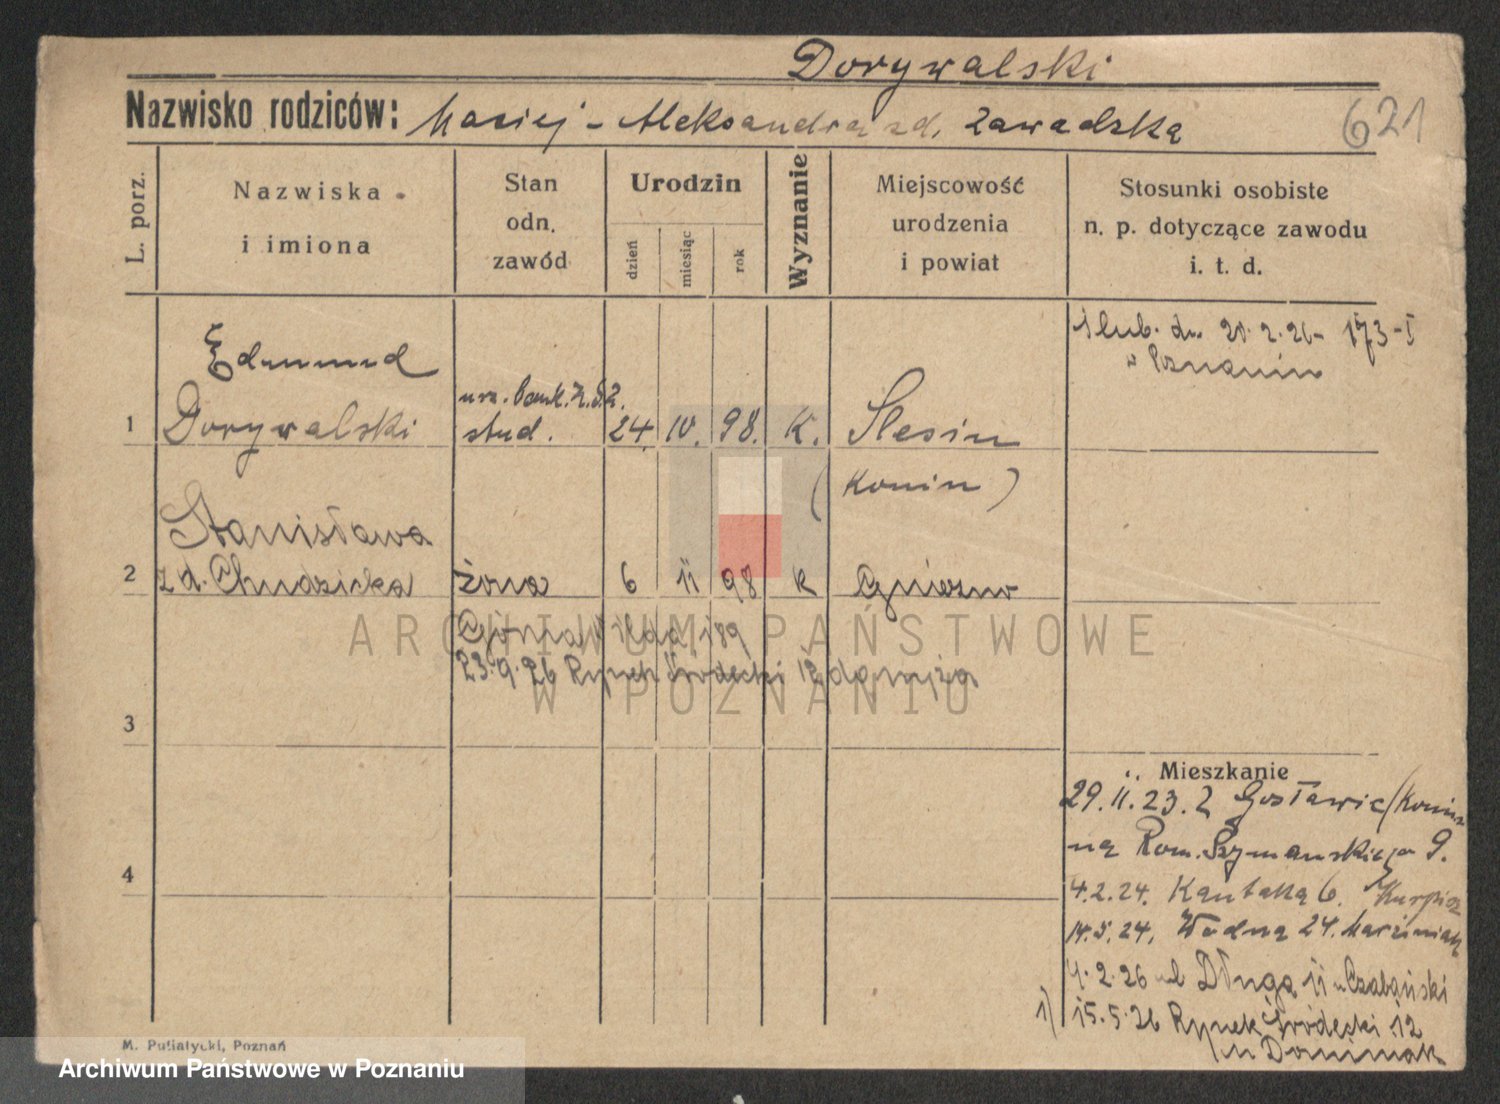 Dorywalski
Nazwisko rodziców: Maciej - Aleksandra zd. Zawadzka
621
L. porz.
Nazwiska
i imiona
Stan
odn.
zawód
Urodzin
dzień
miesiąc
rok
Wyznanie
Miejscowość
urodzenia
i powiat
Stosunki osobiste
n. p. dotyczące zawodu
i. t. d.
ślub. dn. 20.2.26 - 173-I
w Poznaniu
Edmund
urz. bank.
1 Dorywalski stud. 24. IV. 98. K. Slesin
(Konin)
Stanisława
2 zd. Chudzicka żona 6 11 98 k Gniezno
23.9.26 Rynek Śródecki 12
3
Mieszkanie
29.11.23. Z Gosławic (Konin
na Rom. Szymańskiego 9.
4
4.2.24. Kantaka 6. Kurpisz
14.5.24. Wodna 24. Marciniak
4.2.26 ul Długa 11 u Czabański
1) 15.5.26 Rynek Śródecki 12
u Dominiak
M. Putiatycki, Poznań
ARCHIWUM PAŃSTWOWE
W POZNANIU
Archiwum Państwowe w Poznaniu